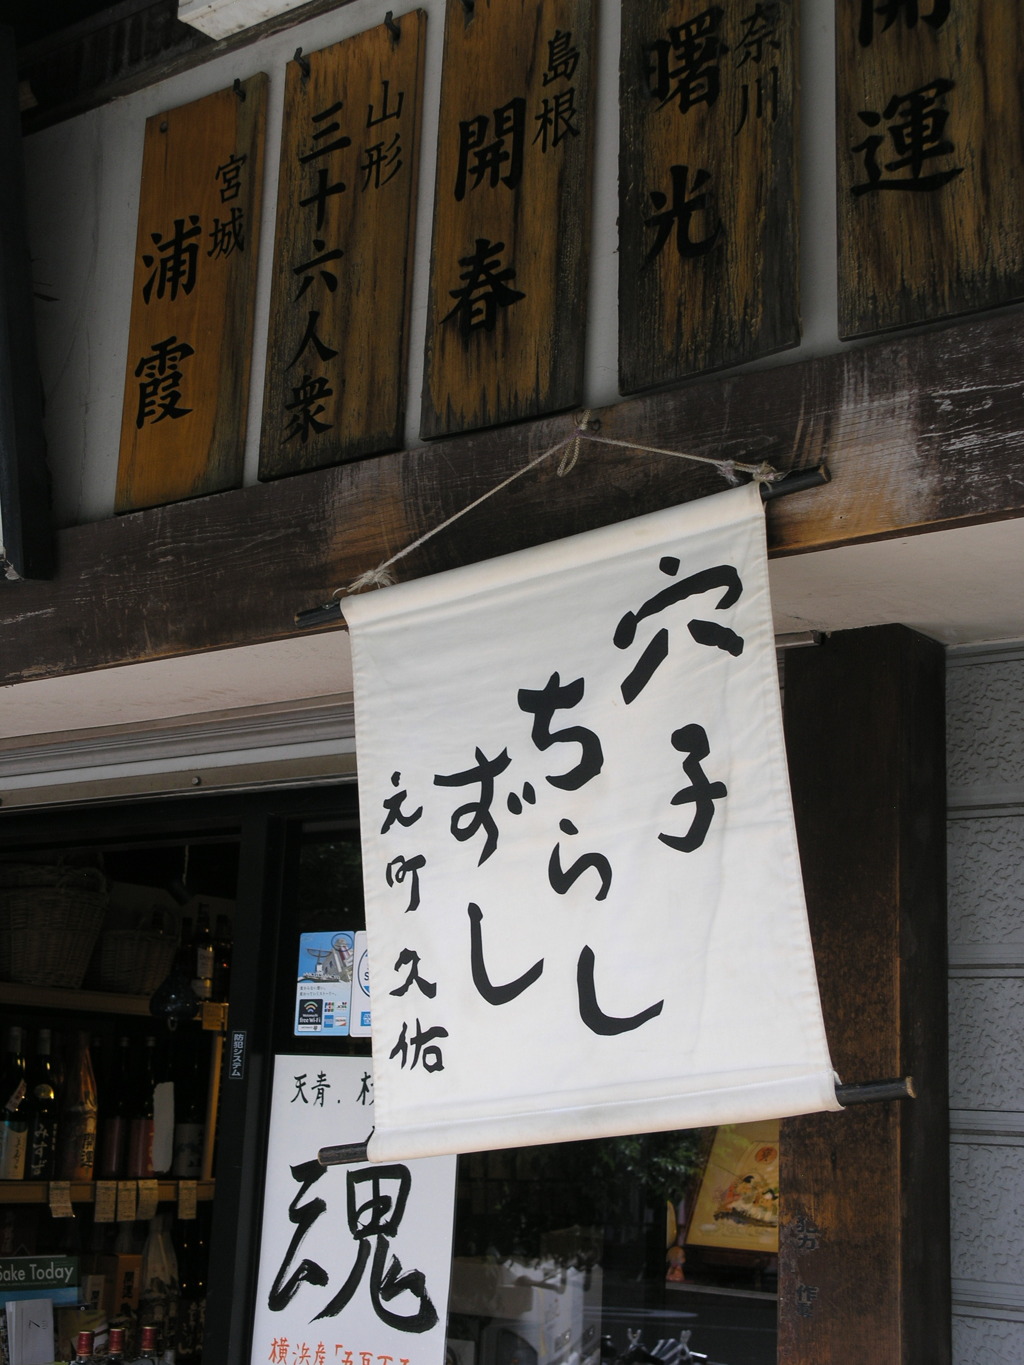 開運
奈川
曙光
島根
開春
山形
三十六人衆
宮城
浦霞
穴子
ちらし
ずし
元町 久佑
天青.
魂
横浜産「
防犯システム
free Wi-Fi
Sake Today